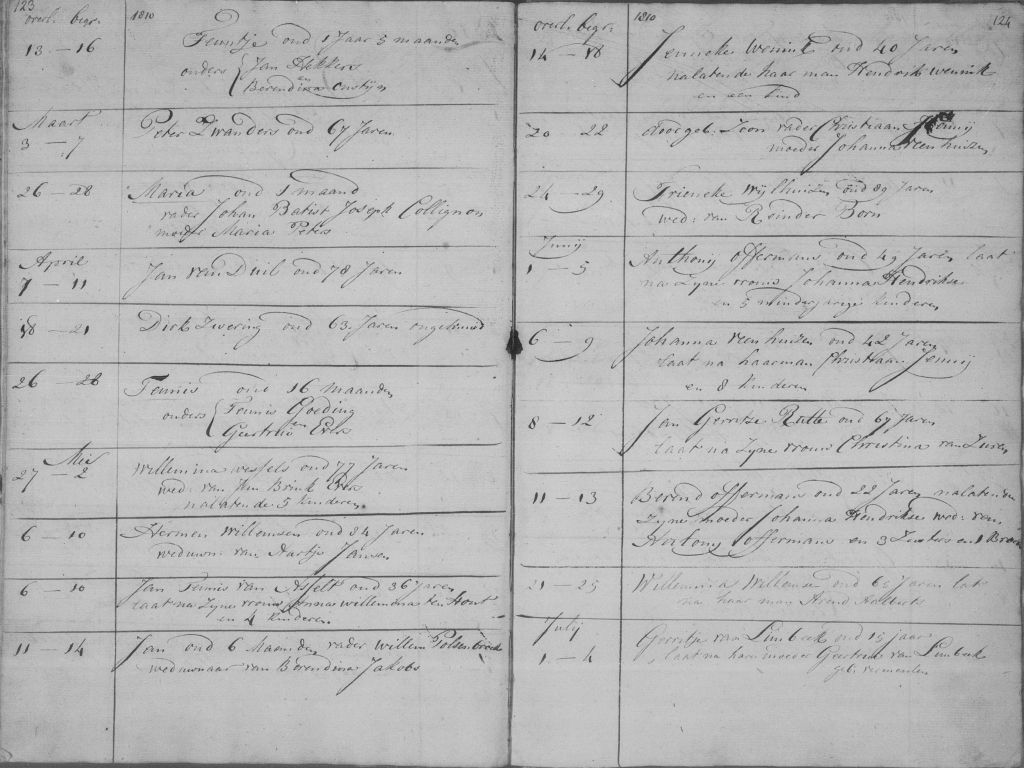 123
overl: begr: 1810
13 — 16 Teuntje oud 1 Jaar 5 maanden
ouders Jan Hekkers
en
Berendina
Maart
3 — 7 Peter Zwanders oud 67 Jaren
26 — 28 Maria oud 1 maand
vader Johan Batist Joseph Collignon
moeder Maria Peters
April
7 — 11 Jan van Duil oud 78 Jaren
18 — 21 Dirk Zwering oud 63 Jaren ongehuwd
26 — 28 Teunis oud 16 maanden
ouders Teunis Goeding
en
Geertrui Evers
Mei
27 — 2 Willemina wessels oud 77 Jaren
wed: van Brink
nalatende 5 kinderen
6 — 10 Hermen Willemsen oud 84 Jaren
weduwn: van Aartje Jansen
6 — 10 Jan Teunis van Asselt oud 36 Jaren
laat na zyne vrouw Anna willemina ten Hout
en 4 kinderen
11 — 14 Jan oud 6 Maanden vader willem Polsenbroek
weduwnaar van Berendina Jakobs
124
overl: begr: 1810
14 — 18 Jenneke wenink oud 40 Jaren
nalatende haar man Hendrik wennink
en een kind
20 — 22 doodgeb: Zoon vader Christiaan Jennij
moeder Johanna veenhuizen
24 — 29 Trieneke wylhuizen oud 89 Jaren
wed: van Reinder Born
Junij
1 — 5 Anthonij offermans oud 49 Jaren laat
na zyne vrouw Johanna Hendrikse
en 5 minderjarige kinderen
6 — 9 Johanna veenhuizen oud 42 Jaren
laat na haar man Christiaan Jennij
en 8 kinderen
8 — 12 Jan Gerritse Rutte oud 69 Jaren
laat na zyne vrouw Christina van Zuren
11 — 13 Berend offermans oud 22 Jaren nalatende
zyne moeder Johanna Hendrikse wed: van
Antony offermans en 3 Zusters en 1 Broer
21 — 25 Willemina Willemsen oud 65 Jaren laat
na haar man Arend Aalberts
July
1 — 4 Gerritje van Limbeek oud 15 jaar
laat na hare moeder Geertrui van Limbeek
geb: vermeulen